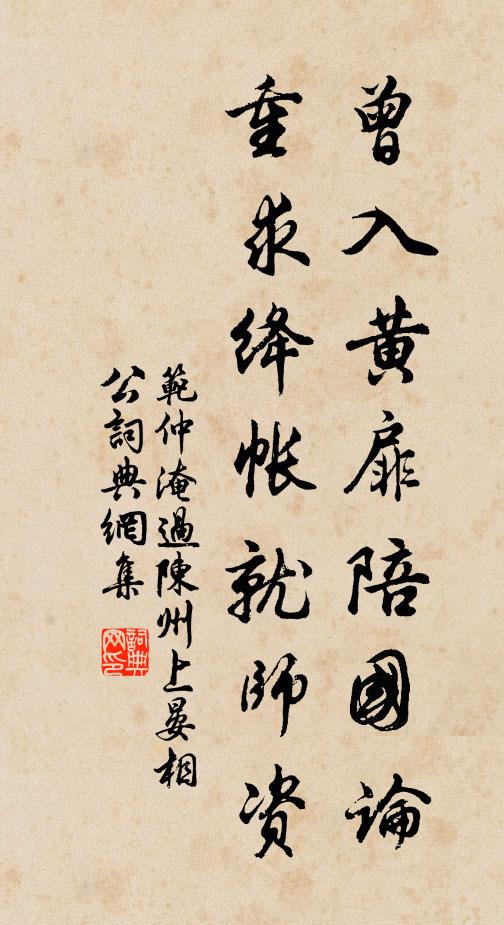 曾入黄扉陪國論
重求绛帐就師资
範仲淹過陳州上晏相
公詞典網集
詞典
网印